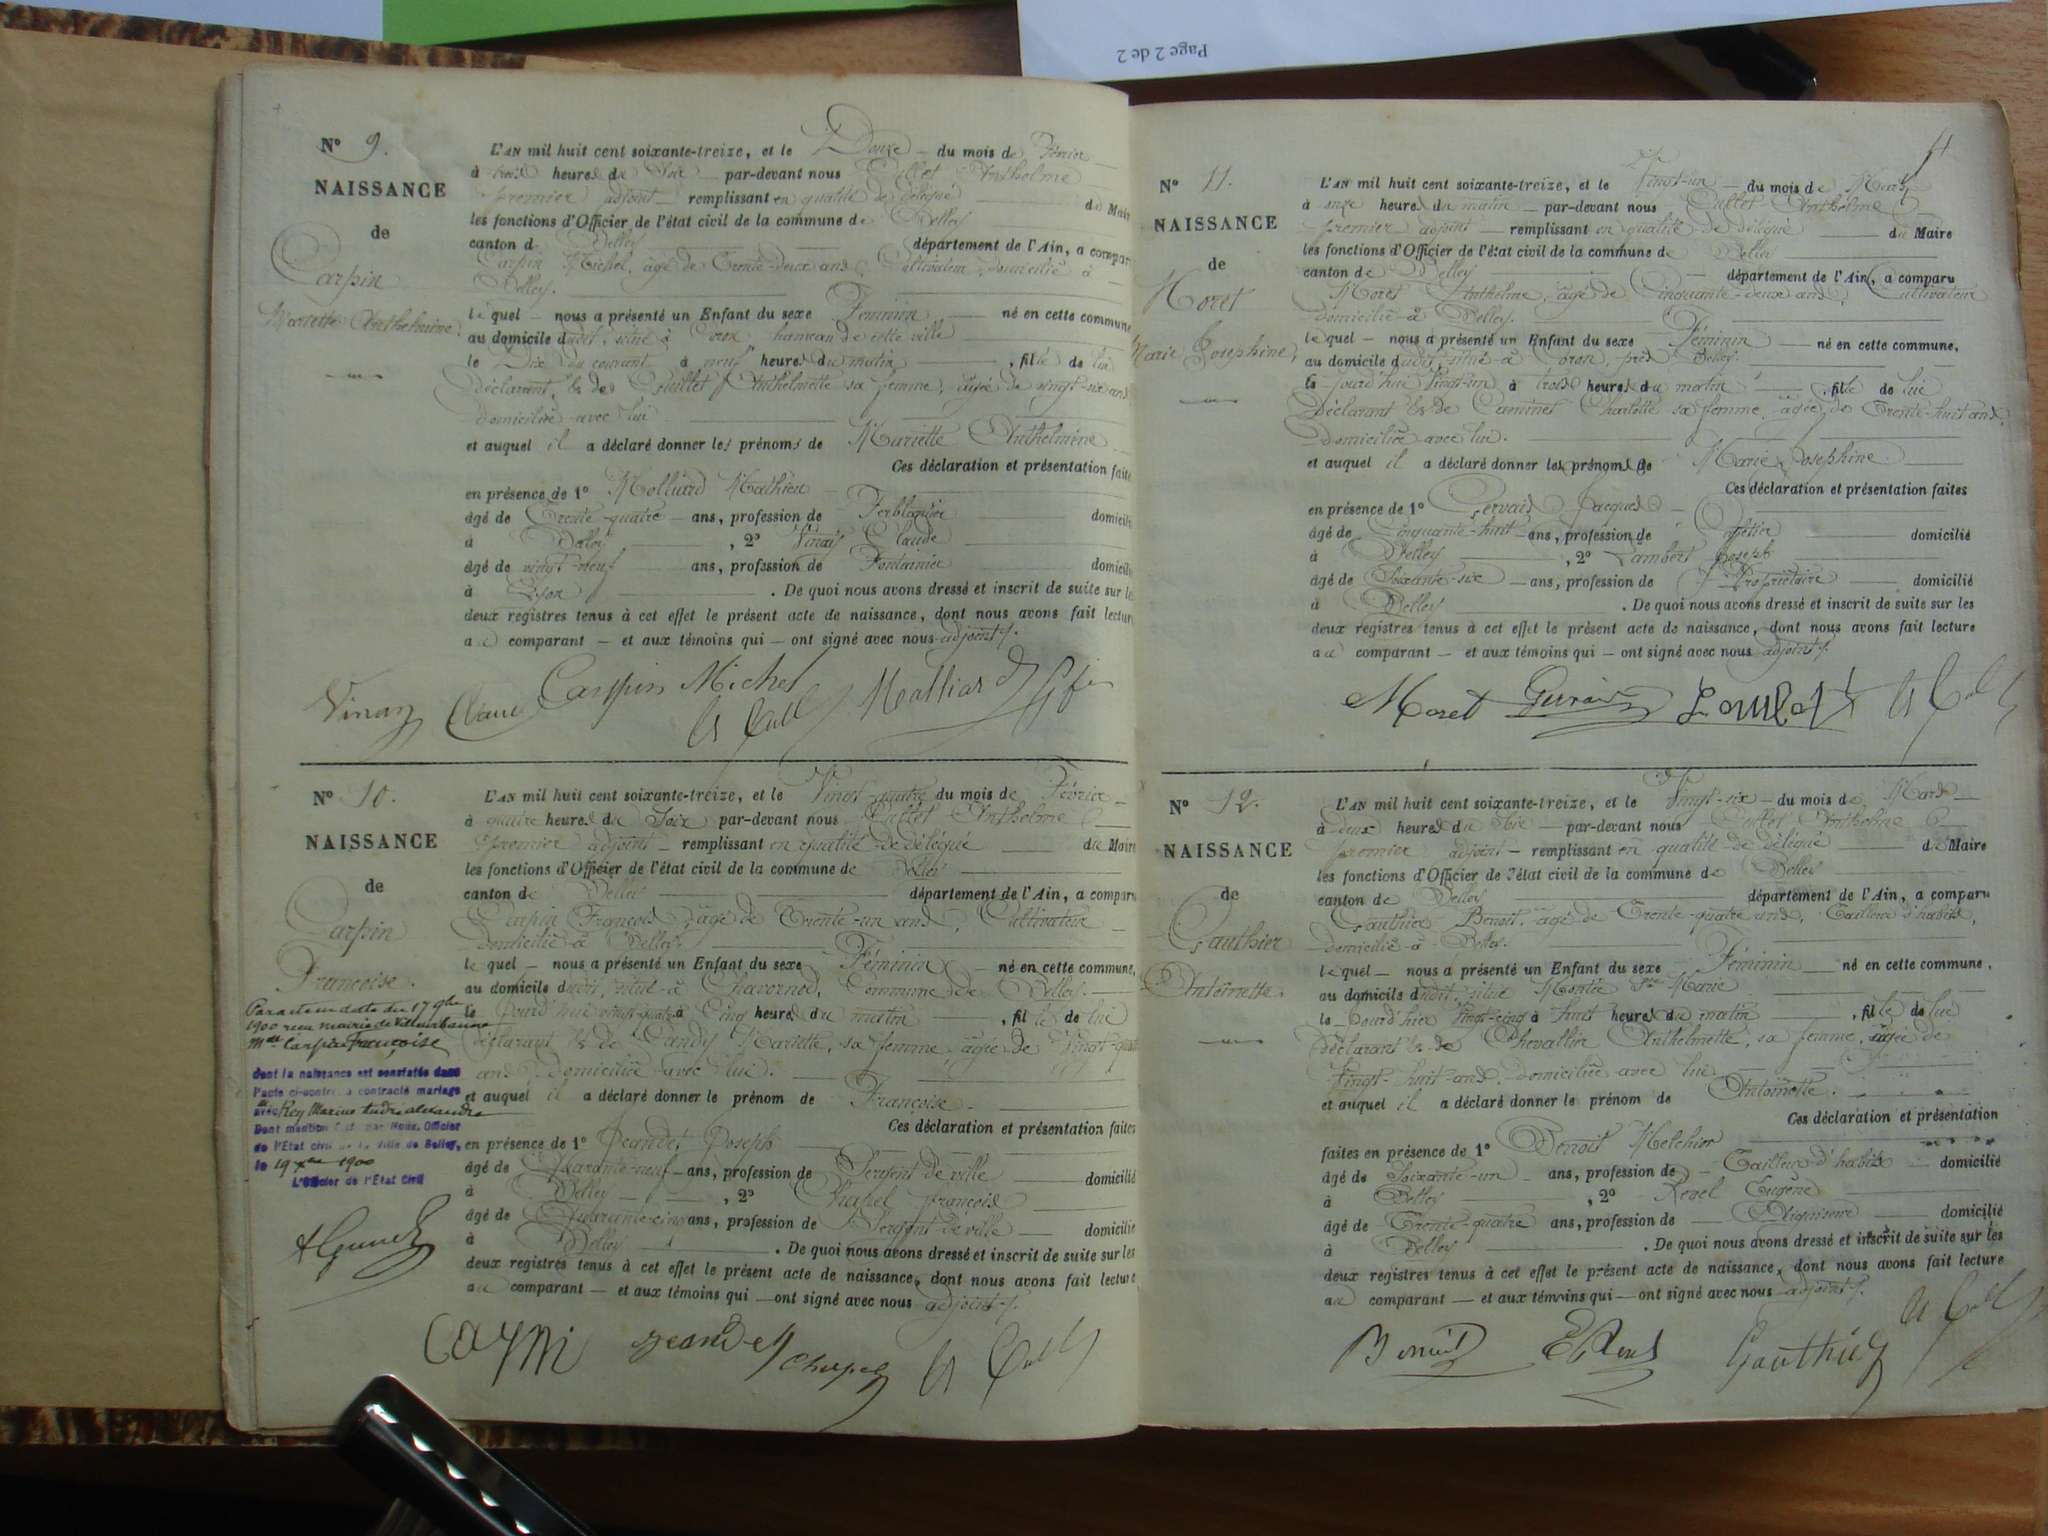 Page 2 de 2
N° 9.
NAISSANCE
de
Carpin
Mariette Anthelmine
L'AN mil huit cent soixante-treize, et le Douze du mois de Février
à trois heures du Soir par-devant nous Cullet Anthelme
premier adjoint remplissant en qualité de délégué du Mair
les fonctions d'Officier de l'état civil de la commune de Belley
canton de Belley département de l'Ain, a compar
Carpin Michel, âgé de Trente-deux ans, Cultivateur, domicilié à
Belley.
lequel nous a présenté un Enfant du sexe Féminin né en cette commune
au domicile dudit, situé à Coron, hameau de cette ville
le Dix du courant à neuf heures du matin, fille de lui
déclarant, & de Anthelmette sa femme, âgée de vingt-six ans,
domiciliée avec lui
et auquel il a déclaré donner les prénoms de Mariette Anthelmine
Ces déclaration et présentation faite
en présence de 1° Molliard Mathieu
âgé de Trente-quatre ans, profession de Ferblantier domicili
à Belley, 2° Vinay Claude
âgé de vingt-neuf ans, profession de Fontainier domicili
à Lyon. De quoi nous avons dressé et inscrit de suite sur le
deux registres tenus à cet effet le présent acte de naissance, dont nous avons fait lectur
au comparant et aux témoins qui ont signé avec nous adjoint.
Vinay Claude Carpin Michel Molliard
N° 10.
NAISSANCE
de
Carpin
Françoise.
Par acte en date du 17 9bre
1900 reçu mairie de Villeurbanne
Mlle Carpin Françoise
dont la naissance est constatée dans
l'acte ci-contre a contracté mariage
avec Rey Marius André Alexandre
Dont mention par Nous, Officier
de l'Etat civil de la ville de Belley,
le 19 Xbre 1900
L'Officier de l'Etat Civil
L'AN mil huit cent soixante-treize, et le Vingt-quatre du mois de Février
à quatre heures du Soir par-devant nous Cullet Anthelme
premier adjoint remplissant en qualité de délégué du Maire
les fonctions d'Officier de l'état civil de la commune de Belley
canton de Belley département de l'Ain, a comparu
Carpin François, âgé de Trente-un ans, Cultivateur
domicilié à Belley.
lequel nous a présenté un Enfant du sexe Féminin né en cette commune,
au domicile dudit, situé à Chavornod, Commune de Belley.
le jourd'hui vingt-quatre à Cinq heures du matin, fille de lui
déclarant & de Mariette, sa femme, âgée de Vingt-quatre
ans domiciliée avec lui.
et auquel il a déclaré donner le prénom de Françoise.
Ces déclaration et présentation faites
en présence de 1° Jeandet Joseph
âgé de Quarante-neuf ans, profession de Sergent de ville domicilié
à Belley, 2° Chapel François
âgé de Quarante-cinq ans, profession de Sergent de ville domicilié
à Belley. De quoi nous avons dressé et inscrit de suite sur les
deux registres tenus à cet effet le présent acte de naissance, dont nous avons fait lecture
au comparant et aux témoins qui ont signé avec nous adjoint.
Jeandet Chapel
4
N° 11.
NAISSANCE
de
Moret
Marie Joséphine,
L'AN mil huit cent soixante-treize, et le Vingt-un du mois de Mars
à onze heures du matin par-devant nous Cullet Anthelme
premier adjoint remplissant en qualité de délégué du Maire
les fonctions d'Officier de l'état civil de la commune de Belley
canton de Belley département de l'Ain, a comparu
Moret Anthelme, âgé de Cinquante-deux ans, Cultivateur
domicilié à Belley.
lequel nous a présenté un Enfant du sexe Féminin né en cette commune,
au domicile dudit, situé à Coron, près Belley.
le jourd'hui Vingt-un à trois heures du matin, fille de lui
déclarant & de Caminet Charlotte sa femme, âgée de Trente-huit ans,
domiciliée avec lui.
et auquel il a déclaré donner les prénoms de Marie Joséphine
Ces déclaration et présentation faites
en présence de 1° Gervais Jacques
âgé de Cinquante-huit ans, profession de domicilié
à Belley, 2° Lambert Joseph
âgé de Soixante-six ans, profession de Propriétaire domicilié
à Belley. De quoi nous avons dressé et inscrit de suite sur les
deux registres tenus à cet effet le présent acte de naissance, dont nous avons fait lecture
au comparant et aux témoins qui ont signé avec nous adjoint.
Moret Gervais Lambert
N° 12.
NAISSANCE
de
Gauthier
Antoinette.
L'AN mil huit cent soixante-treize, et le Vingt-six du mois de Mars
à deux heures du Soir par-devant nous Cullet Anthelme
premier adjoint remplissant en qualité de délégué du Maire
les fonctions d'Officier de l'état civil de la commune de Belley
canton de Belley département de l'Ain, a comparu
Gauthier Benoit, âgé de Trente-quatre ans, Tailleur d'habits,
domicilié à Belley.
lequel nous a présenté un Enfant du sexe Féminin né en cette commune,
au domicile dudit, situé Montée Ste Marie
le jourd'hier Vingt-cinq à huit heures du matin, fille de lui
déclarant & de Chevallin Anthelmette, sa femme, âgée de
Vingt-huit ans, domiciliée avec lui
et auquel il a déclaré donner le prénom de Antoinette.
Ces déclaration et présentation
faites en présence de 1° Benoit Melchior
âgé de Soixante-un ans, profession de Tailleur d'habits domicilié
à Belley, 2° Revel Eugène
âgé de Trente-quatre ans, profession de domicilié
à Belley. De quoi nous avons dressé et inscrit de suite sur les
deux registres tenus à cet effet le présent acte de naissance, dont nous avons fait lecture
au comparant et aux témoins qui ont signé avec nous adjoint.
Benoit E Revel Gauthier